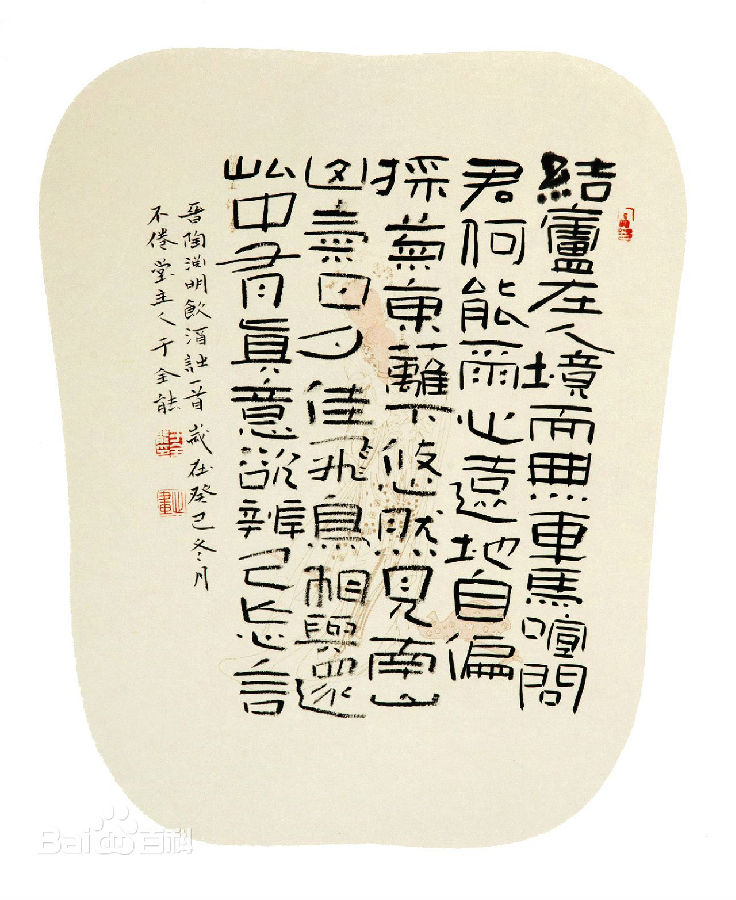 結廬在人境而無車馬喧問
君何能爾心遠地自偏
採菊東籬下悠然見南山
山氣日夕佳飛鳥相與還
此中有真意欲辨已忘言
晉陶淵明飲酒詩一首 歲在癸巳冬月
不倦堂主人于全能
Bai百科